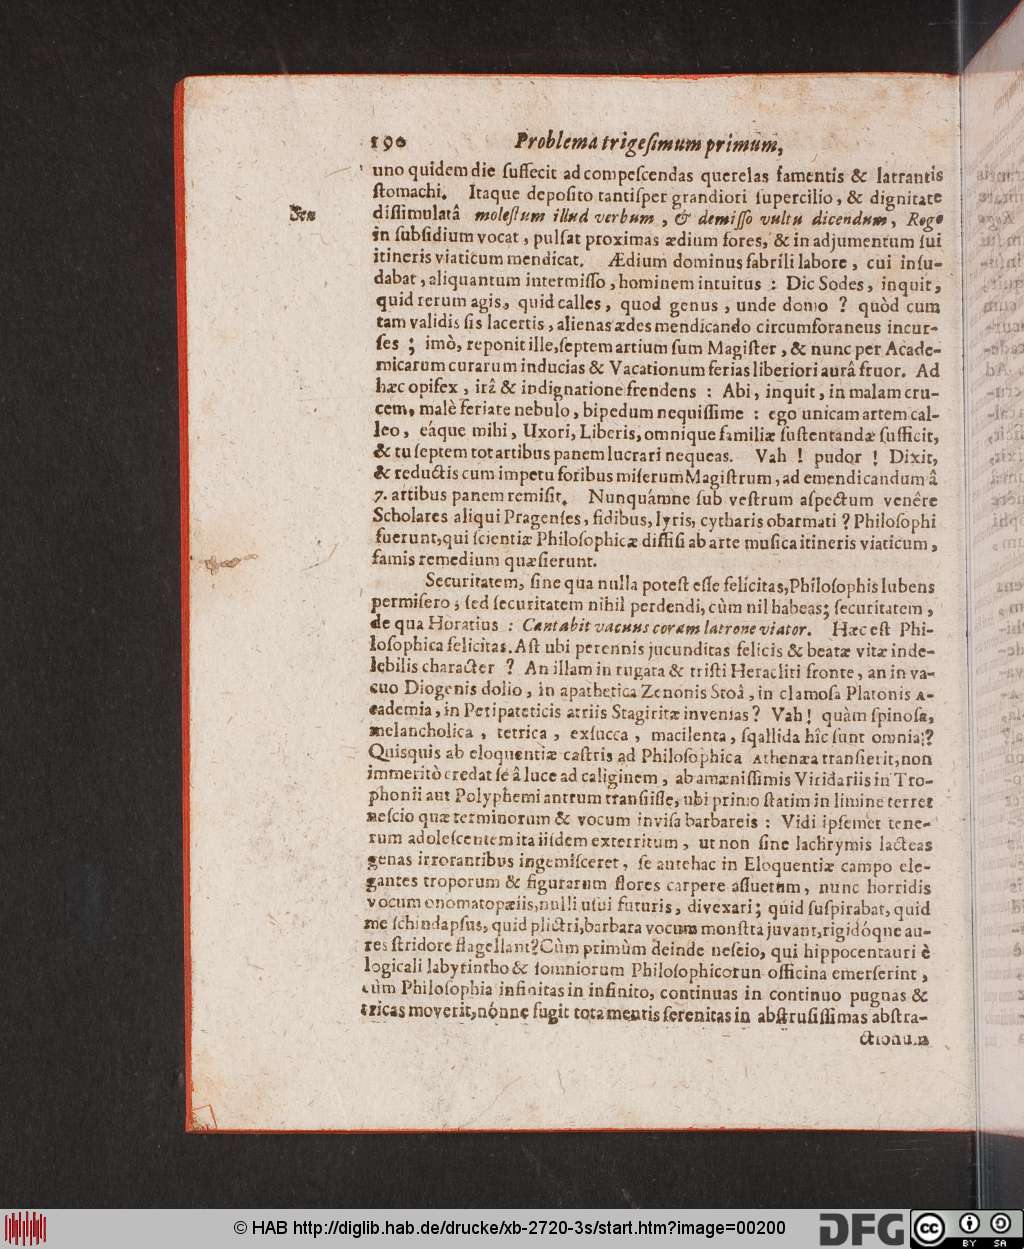 190 Problema trigesimum primum,
uno quidem die suffecit ad compescendas querelas famentis & latrantis
stomachi. Itaque deposito tantisper grandiori supercilio, & dignitate
Sen
dissimulatâ molestum illud verbum, & demisso vultu dicendum, Rogo
in subsidium vocat, pulsat proximas ædium fores, & in adjumentum sui
itineris viaticum mendicat. Ædium dominus fabrili labore, cui insu-
dabat, aliquantum intermisso, hominem intuitus : Dic Sodes, inquit,
quid rerum agis, quid calles, quod genus, unde domo ? quòd cum
tam validis sis lacertis, alienas ædes mendicando circumforaneus incur-
ses ; imò, reponit ille, septem artium sum Magister, & nunc per Acade-
micarum curarum inducias & Vacationum ferias liberiori aurâ fruor. Ad
hæc opifex, irâ & indignatione frendens : Abi, inquit, in malam cru-
cem, malè feriate nebulo, bipedum nequissime : ego unicam artem cal-
leo, eáque mihi, Uxori, Liberis, omnique familiæ sustentandæ sufficit,
& tu septem tot artibus panem lucrari nequeas. Vah ! pudor ! Dixit,
& reductis cum impetu foribus miserum Magistrum, ad emendicandum â
7. artibus panem remisit. Nunquámne sub vestrum aspectum venêre
Scholares aliqui Pragenses, fidibus, lyris, cytharis obarmati ? Philosophi
fuerunt, qui scientiæ Philosophicæ diffisi ab arte musica itineris viaticum,
famis remedium quæsierunt.
Securitatem, sine qua nulla potest esse felicitas, Philosophis lubens
permisero ; sed securitatem nihil perdendi, cùm nil habeas; securitatem,
de qua Horatius : Cantabit vacuus coram latrone viator. Hæc est Phi-
losophica felicitas. Ast ubi perennis jucunditas felicis & beatæ vitæ inde-
lebilis character ? An illam in rugata & tristi Heracliti fronte, an in va-
cuo Diogenis dolio, in apathetica Zenonis Stoâ, in clamosa Platonis A-
cademia, in Peripateticis atriis Stagiritæ invenias ? Vah ! quàm spinosa,
melancholica, tetrica, exsucca, macilenta, sqallida hîc sunt omnia!?
Quisquis ab eloquentiæ castris ad Philosophica Athenæa transierit, non
immeritò credat se â luce ad caliginem, ab amænissimis Viridariis in Tro-
phonii aut Polyphemi antrum transiisse, ubi primo statim in limine terret
nescio quæ terminorum & vocum invisa barbareis : Vidi ipsemet tene-
rum adolescentem ita iisdem exterritum, ut non sine lachrymis lacteas
genas irrorantibus ingemisceret, se antehac in Eloquentiæ campo ele-
gantes troporum & figurarum flores carpere assuetum, nunc horridis
vocum onomatopæiis, nulli usui futuris, divexari; quid suspirabat, quid
me schindapsus, quid plictri, barbara vocum monstra juvant, rigidóqne au-
res stridore flagellant? Cùm primùm deinde nescio, qui hippocentauri è
logicali labyrintho & somniorum Philosophicorun officina emerserint,
cùm Philosophia infinitas in infinito, continuas in continuo pugnas &
tricas moverit, nónne fugit tota mentis serenitas in abstrusissimas abstra-
ctionum
© HAB http://diglib.hab.de/drucke/xb-2720-3s/start.htm?image=00200
DFG
cc BY SA